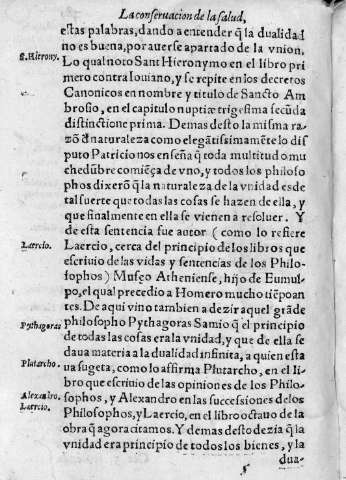 La conseruacion de la salud,
estas palabras, dando a entender q̃ la dualidad
no es buena, por auerse apartado de la vnion.
S. Hirony.
Lo qual noto Sant Hieronymo en el libro pri
mero contra Iouiano, y se repite en los decretos
Canonicos en nombre y titulo de Sancto Am
brosio, en el capitulo nuptiæ trigesima secũda
distinctione prima. Demas desto la misma ra
zõ d̃ naturaleza como elegãtissimamẽte lo dis
puto Patricio nos enseña q̃ toda multitud o mu
chedũbre comiẽça de vno, y todos los philoso
phos dixerõ q̃ la naturaleza de la vnidad es de
tal suerte que todas las cosas se hazen de ella, y
que finalmente en ella se vienen a resoluer. Y
de esta sentencia fue autor (como lo refiere
Laercio.
Laercio, cerca del principio de los libros que
escriuio de las vidas y sentencias de los Philo-
sophos) Museo Atheniense, hijo de Eumul-
po, el qual precedio a Homero mucho tiẽpo an
tes. De aqui vino tambien a dezir aquel grãde
Pythagoras
philosopho Pythagoras Samio q̃ el principio
de todas las cosas era la vnidad, y que de ella se
daua materia a la dualidad infinita, a quien esta
Plutarcho.
ua sugeta, como lo affirma Plutarcho, en el li
bro que escriuio de las opiniones de los Philo-
Alexandro.
sophos, y Alexandro en las successiones de los
Laercio.
Philosophos, y Laercio, en el libro octauo de la
obra q̃ agora citamos. Y demas desto dezia q̃ la
vnidad era principio de todos los bienes, y la
dua-